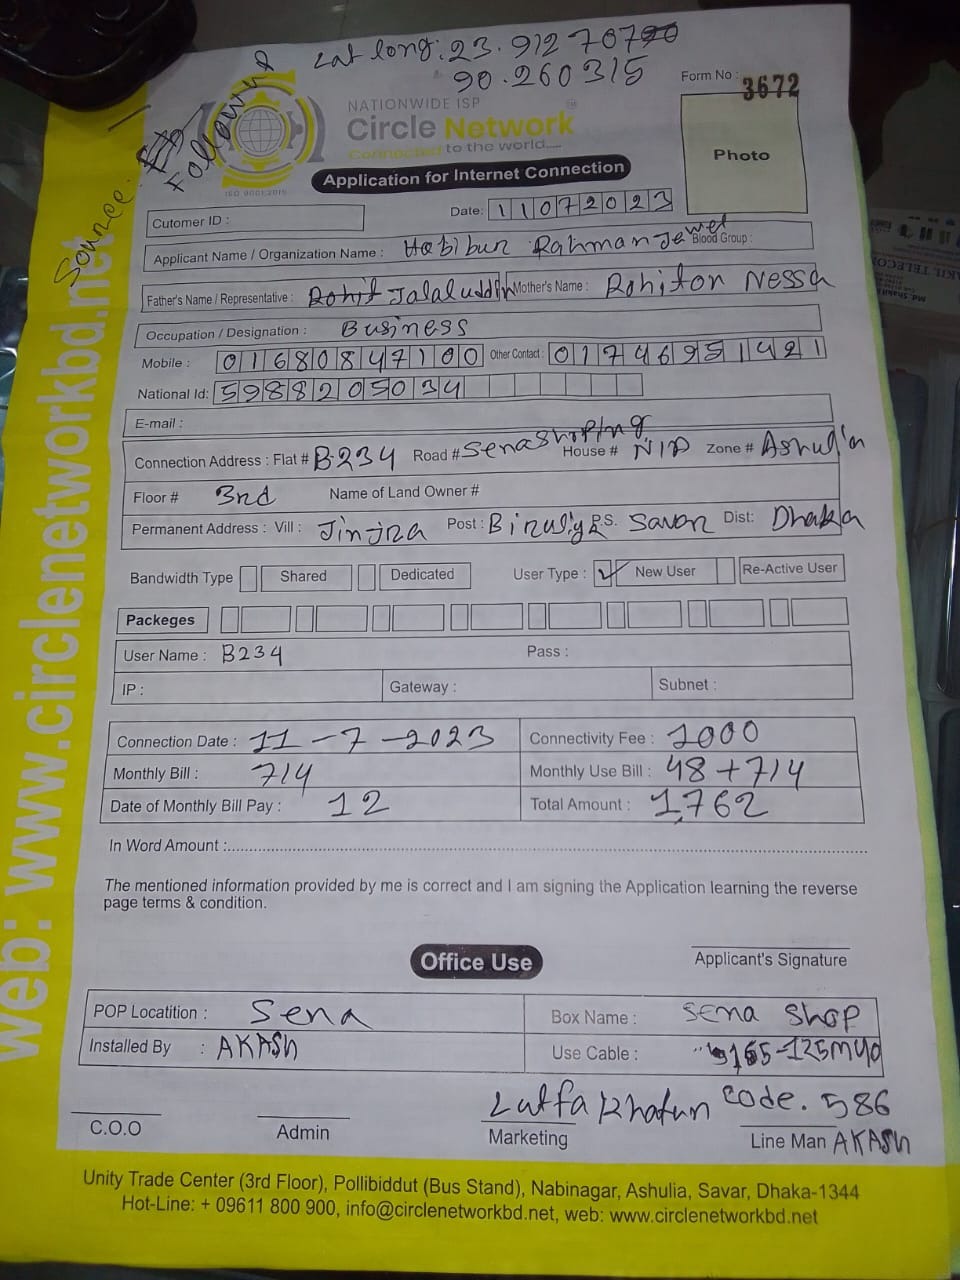 Lat long: 23.9127079
90.260315
Source: Followup
Form No : 3672
NATIONWIDE ISP
Circle Network
Connected to the world.....
ISO 9001:2015
Photo
Application for Internet Connection
Cutomer ID :
Date: 11072023
Applicant Name / Organization Name : Habibur Rahman Jewel Blood Group :
Father's Name / Representative : Rohit Jalaluddin Mother's Name : Rohiton Nessa
Occupation / Designation : Business
Mobile : 01680847100 Other Contact : 01746951421
National Id: 5988205034
E-mail :
Connection Address : Flat # B-234 Road # Senashoping House # N/A Zone # Ashulia
Floor # 3rd Name of Land Owner #
Permanent Address : Vill : Jinjra Post : Birulia P.S. Savar Dist: Dhaka
Bandwidth Type Shared Dedicated User Type : ✓ New User Re-Active User
Packeges
User Name : B234 Pass :
IP : Gateway : Subnet :
Connection Date : 11-7-2023 Connectivity Fee : 1000
Monthly Bill : 714 Monthly Use Bill : 48+714
Date of Monthly Bill Pay : 12 Total Amount : 1,762
In Word Amount :
The mentioned information provided by me is correct and I am signing the Application learning the reverse
page terms & condition.
Applicant's Signature
Office Use
POP Locatition : Sena Box Name : Sena Shop
Installed By : AKASh Use Cable : 165-125=40
Lutfa Khatun Code. 586
C.O.O Admin Marketing Line Man AKASh
Unity Trade Center (3rd Floor), Pollibiddut (Bus Stand), Nabinagar, Ashulia, Savar, Dhaka-1344
Hot-Line: + 09611 800 900, info@circlenetworkbd.net, web: www.circlenetworkbd.net
web: www.circlenetworkbd.net